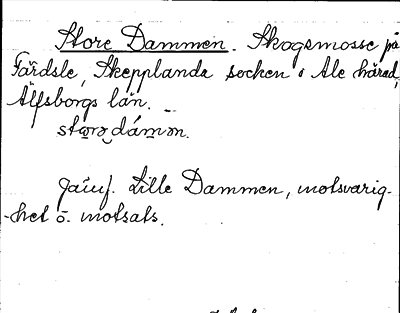 Store Dammen. Skogsmosse på
Färdsle, Skepplanda socken i Ale härad,
Älfsborgs län.
stọrə dám:ən.
Jämf. Lille Dammen, motsvarig-
-het o. motsats.